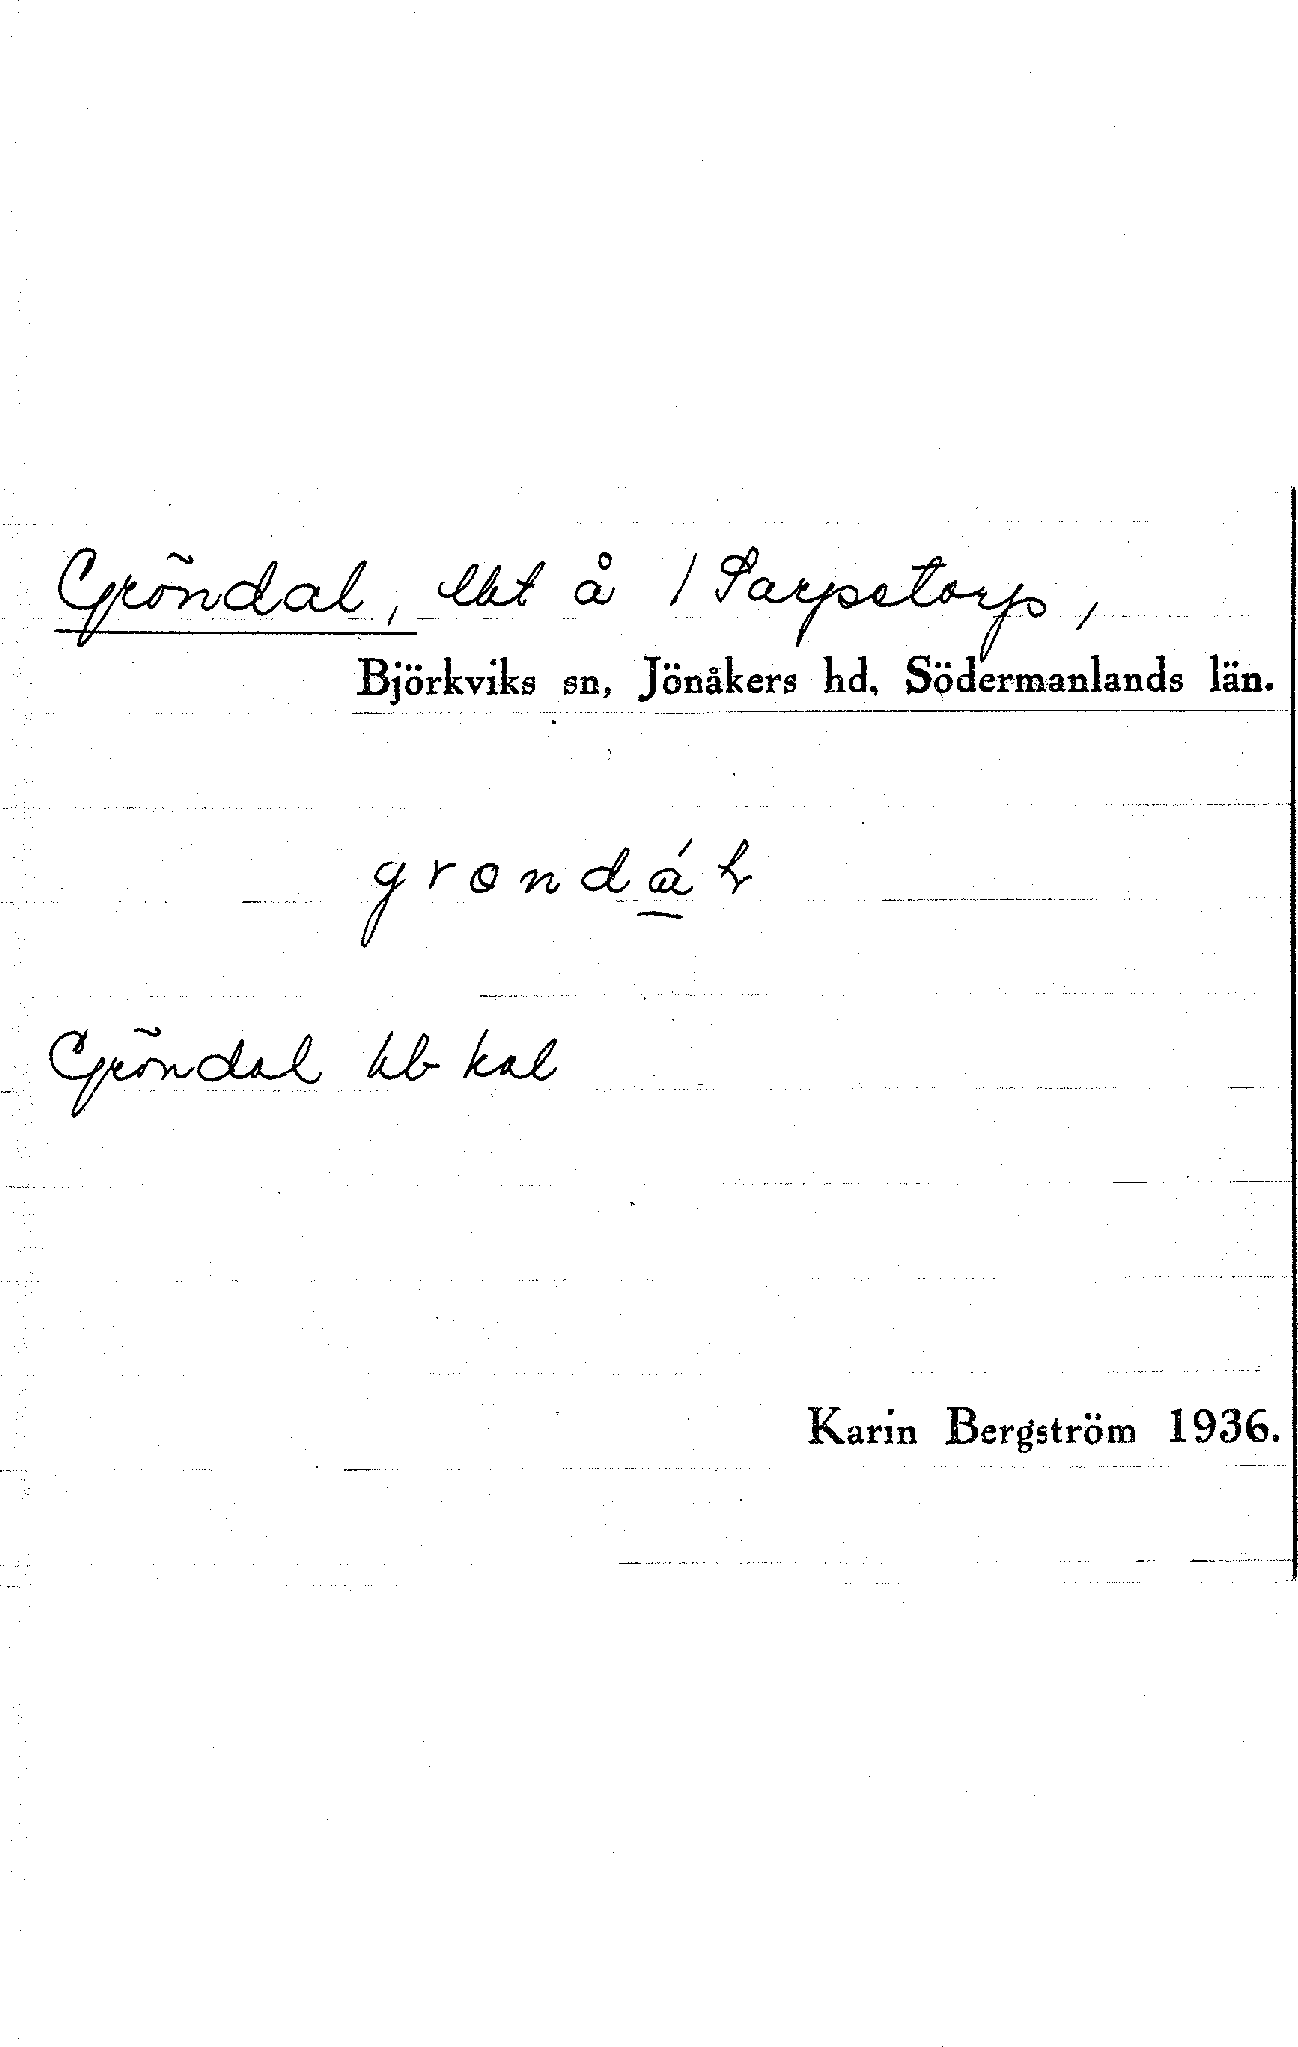 Gröndal, lht å 1 Sarpstorp,
Björkviks sn, Jönåkers hd, Södermanlands län.
Gröndal kb kal
Karin Bergström 1936.